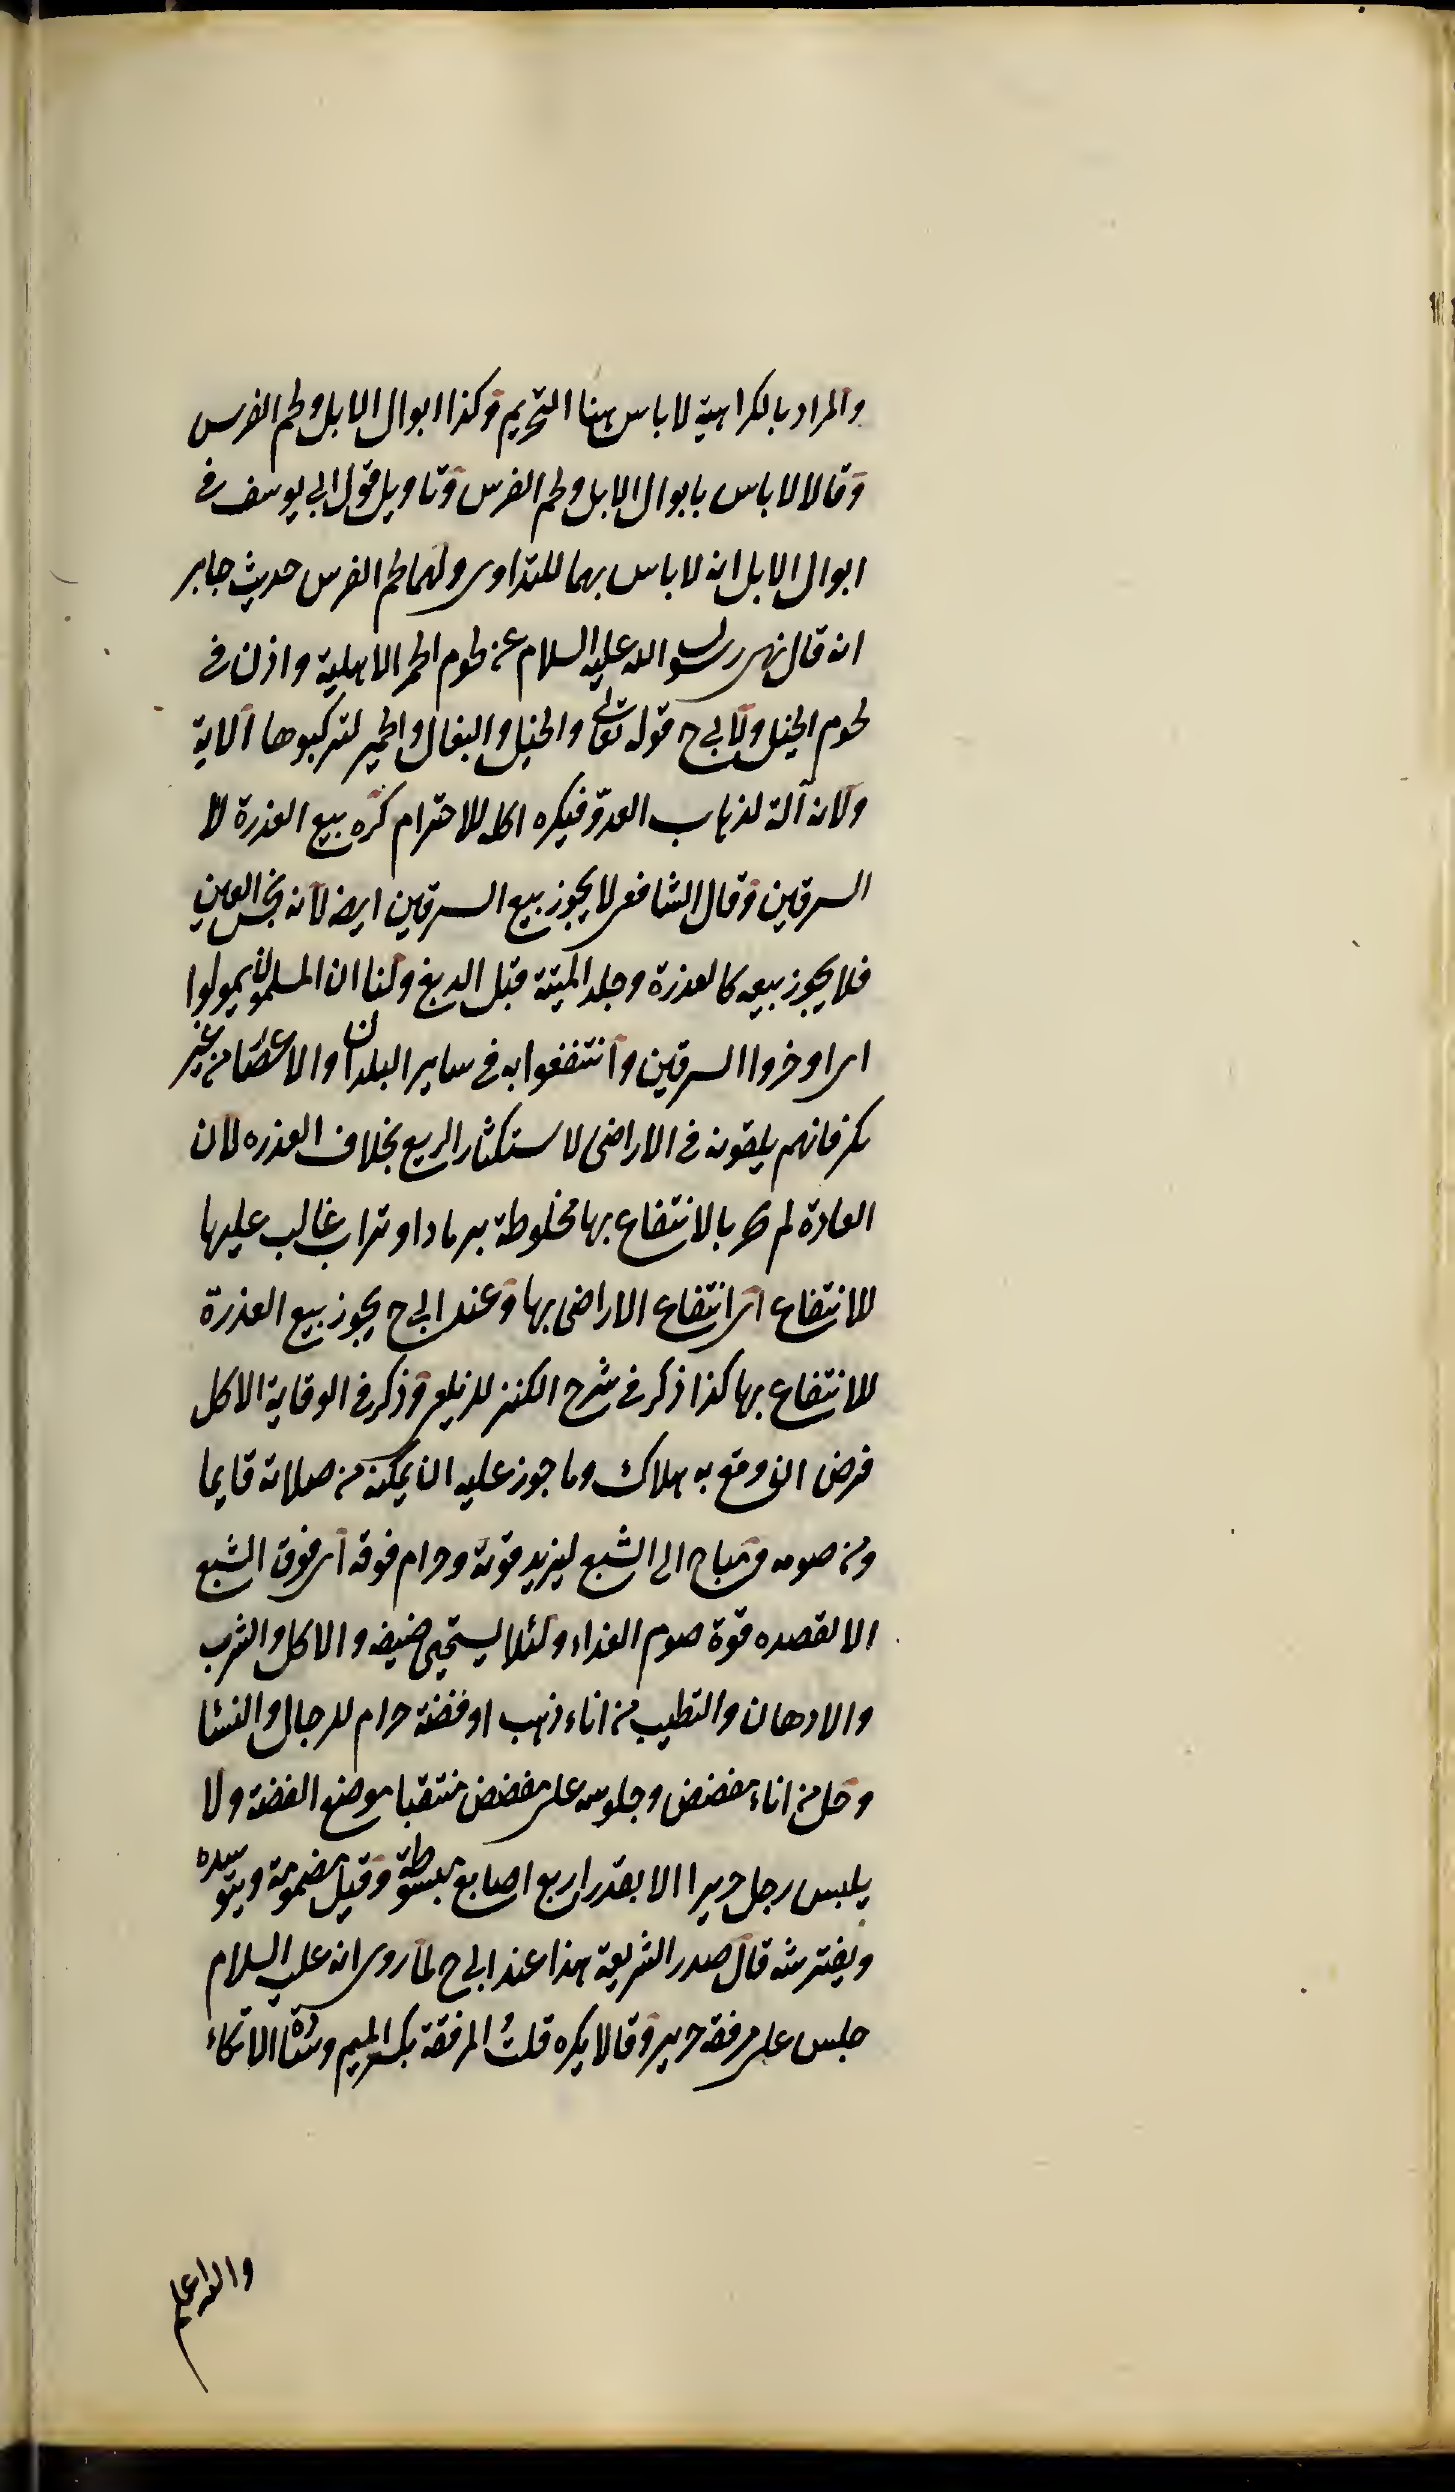 والمراد بالكراهية لا باس هنا التحريم وكذا ابوال الابل ولحم الفرس
وقالا لا باس بابوال الابل ولحم الفرس وتاويل قول ابي يوسف في
ابوال الابل انه لا باس بها للتداوى ولهما لحم الفرس حديث جابر
انه قال نهى رسول الله عليه السلام عن لحوم الحمر الاهلية واذن في
لحوم الخيل ولابي ح قوله تعالى والخيل والبغال والحمير لتركبوها الاية
ولانه آلة لذهاب العدو فيكره اكله للاحترام كره بيع العذرة لا
السرقين وقال الشافعى لا يجوز بيع السرقين ايضه لانه نجس العين
فلا يجوز بيعه كالعذرة وجلد الميتة قبل الدبغ ولنا ان المسلمون يمولوا
اى اوخروا السرقين وانتفعوا به في ساير البلدان والاعصا من غير
نكر فانهم يلقونه في الاراضى لاستكثار الريع بخلاف العذره لان
العادة لم بالانتفاع بها مخلوطة برماد او تراب غالب عليها
للانتفاع اى انتفاع الاراضى بها وعند ابي ح يجوز بيع العذرة
للانتفاع بها كذا ذكر في شرح الكنز للزيلعى وذكر في الوقاية الاكل
فرض ان دفع به هلاك وما جوز عليه ان يمكنه من صلاته قايما
ومن صومه ومباح الى الشبع ليزيد قوته وحرام فوقه اى فوق الشبع
الا لقصده قوة صوم الغداء ولئلا يستحيى ضيفه والاكل والشرب
والادهان والتطيب من اناء ذهب او فضة حرام للرجال والنسا
وحل من اناء مفضض وجلوسه على مفضض متقيا موضع الفضة ولا
يلبس رجل حريرا الا بقدر اربع اصابع مبسوطة وقيل مضمومة ويتوسده
ويفترشه قال صدر الشريعة هذا عند ابي ح لما روى انه عليه السلام
جلس على مرفقة حرير وقالا يكره قلت المرفقة بكسر الميم وسادة الاتكاء
والله اعلم